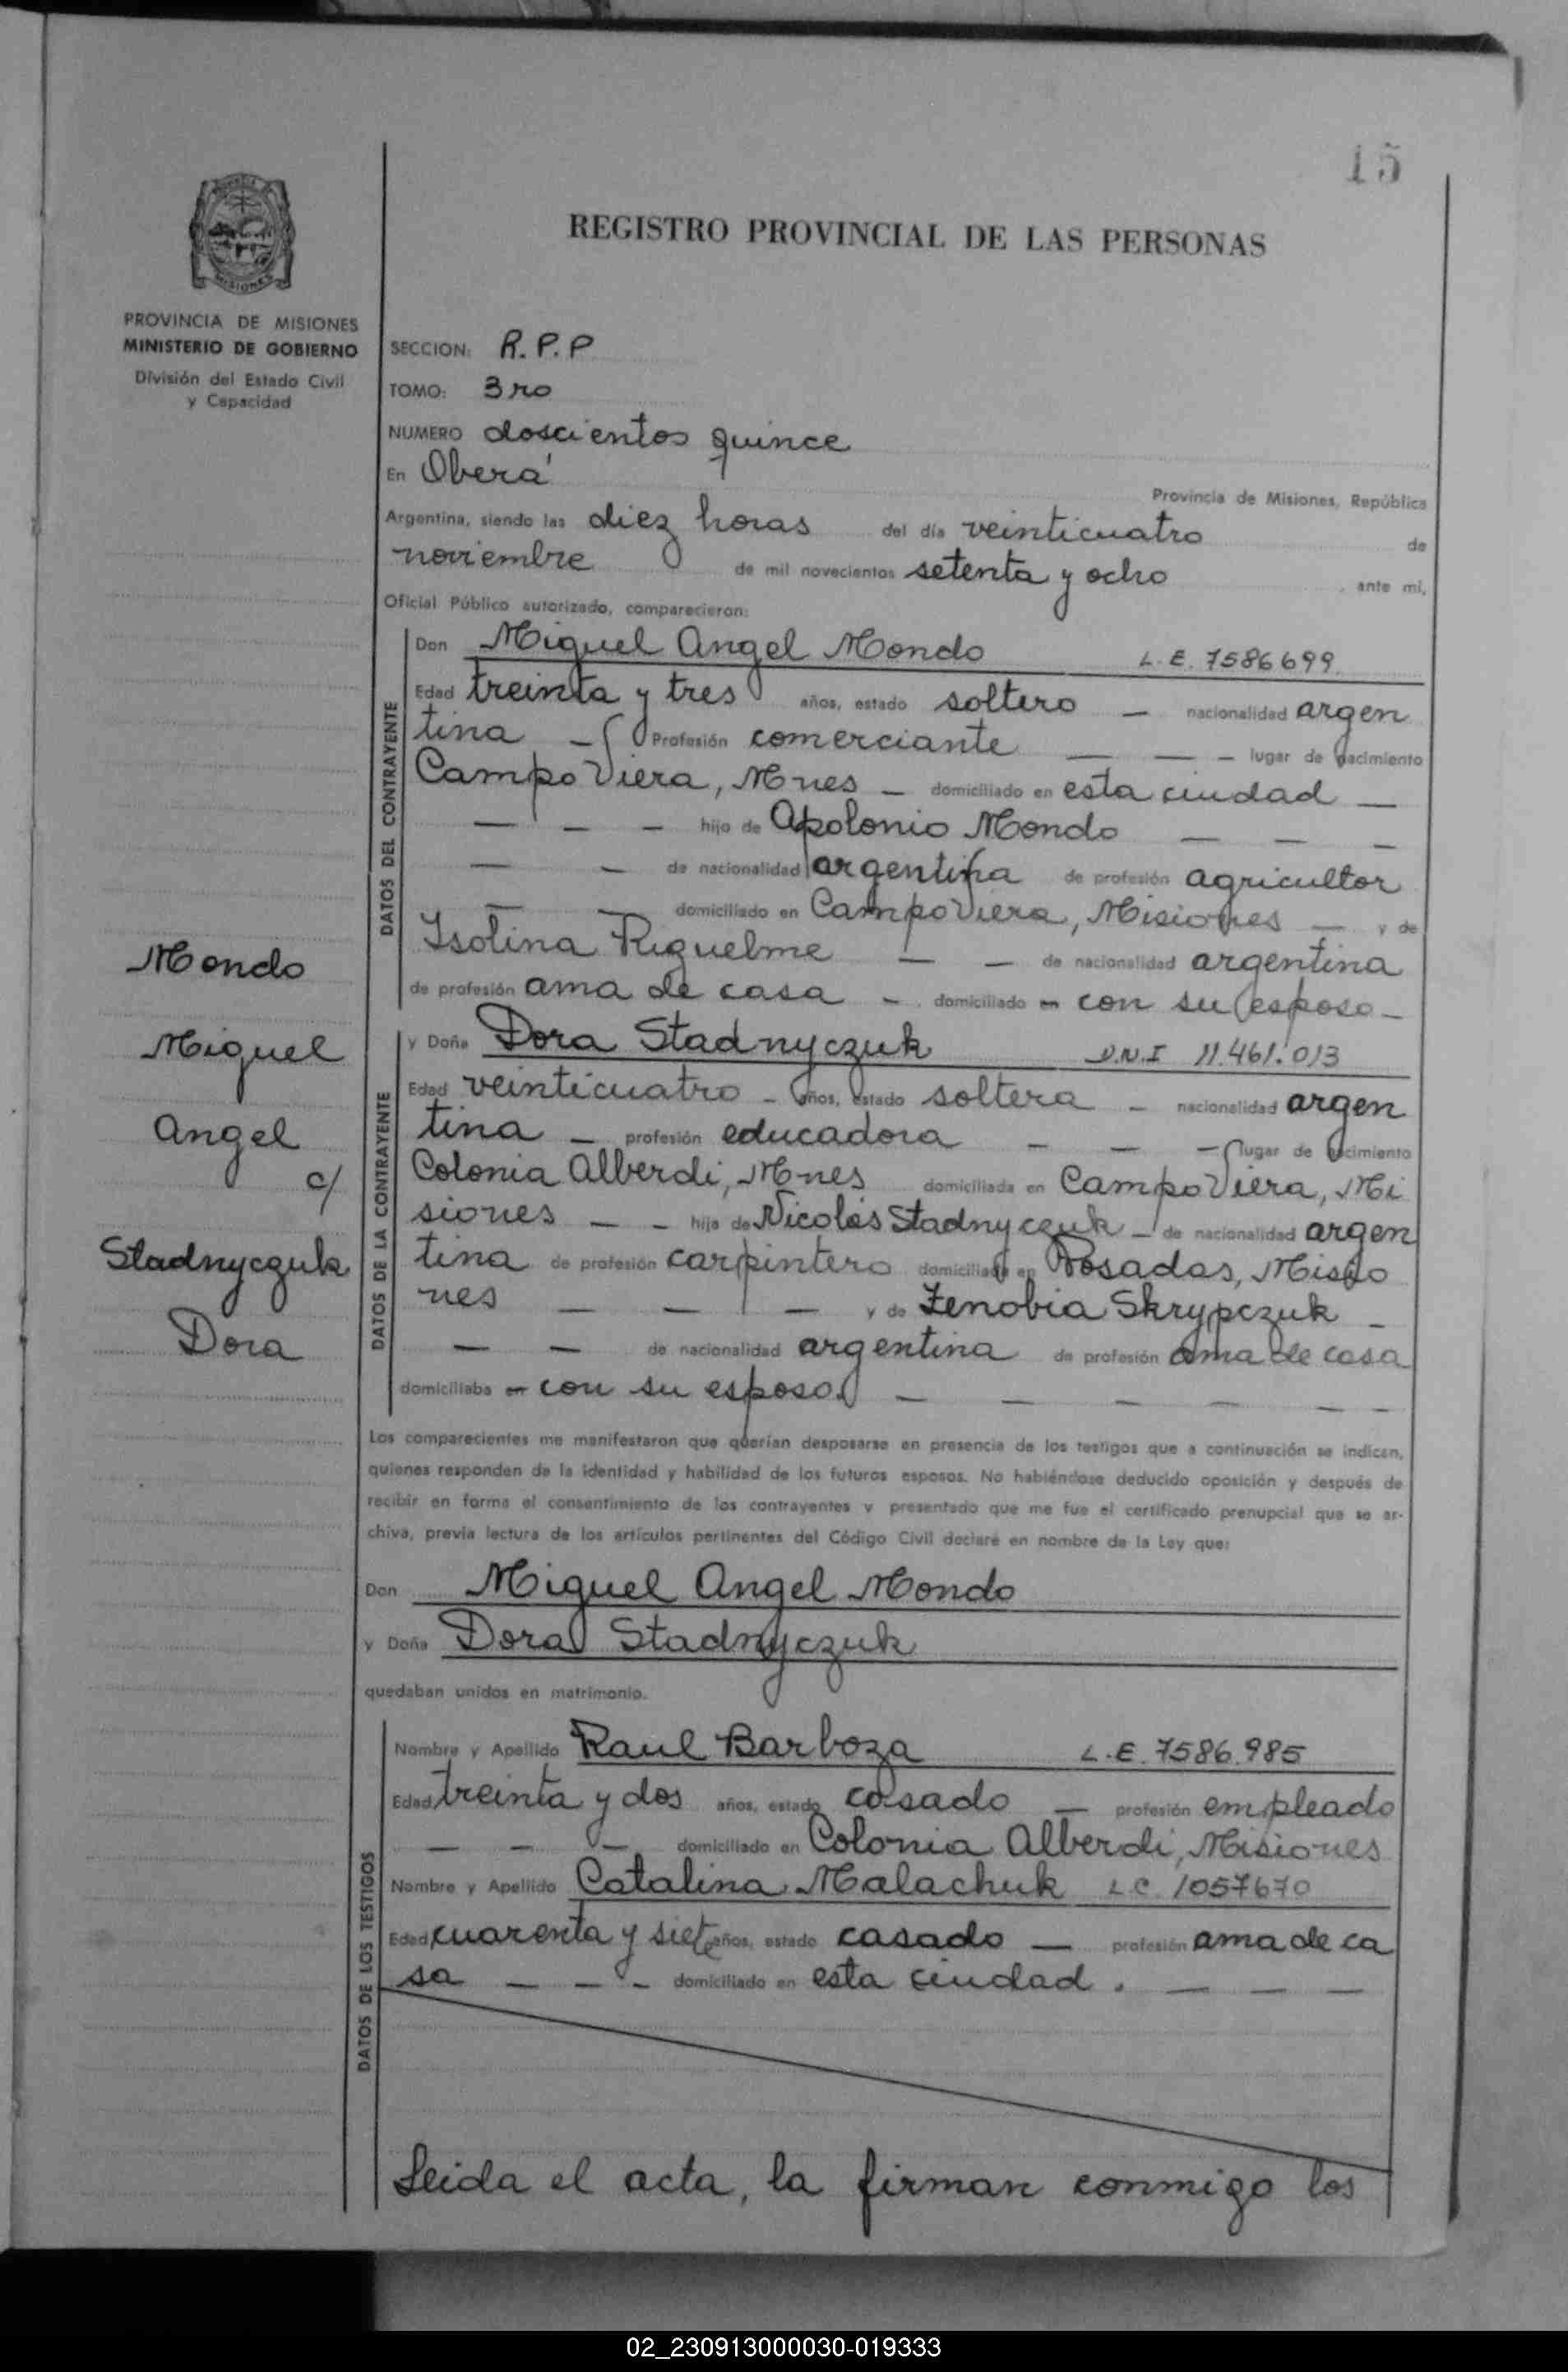 15
REGISTRO PROVINCIAL DE LAS PERSONAS
PROVINCIA DE MISIONES
MINISTERIO DE GOBIERNO
División del Estado Civil
y Capacidad
SECCION: R.P.P
TOMO: 3ro
NUMERO doscientos quince
En Oberá
Provincia de Misiones, República
Argentina, siendo las diez horas del día veinticuatro de
noviembre de mil novecientos setenta y ocho, ante mi,
Oficial Público autorizado, comparecieron:
DATOS DEL CONTRAYENTE
Don Miguel Angel Mondo L.E. 7586699
Edad treinta y tres años, estado soltero — nacionalidad argen
tina — Profesión comerciante — — — lugar de nacimiento
Campo Viera, Mnes — domiciliado en esta ciudad —
— — — hijo de Apolonio Mondo — — —
— — de nacionalidad argentina de profesión agricultor
— — domiciliado en Campo Viera, Misiones — y de
Isolina Riquelme — — de nacionalidad argentina
de profesión ama de casa — domiciliado en con su esposo —
DATOS DE LA CONTRAYENTE
y Doña Dora Stadnyczuk D.N.I 11.461.013
Edad veinticuatro — años, estado soltera — nacionalidad argen
tina — profesión educadora — — — lugar de nacimiento
Colonia Alberdi, Mnes domiciliada en Campo Viera, Mi
siones — — hija de Nicolás Stadnyczuk — de nacionalidad argen
tina de profesión carpintero domiciliado en Posadas, Misio
nes — — — y de Zenobia Skrypczuk —
— — de nacionalidad argentina de profesión ama de casa
domiciliaba en con su esposo. — — — — — —
Mondo
Miguel
Angel
c/
Stadnyczuk
Dora
Los comparecientes me manifestaron que querían desposarse en presencia de los testigos que a continuación se indican,
quienes responden de la identidad y habilidad de los futuros esposos. No habiéndose deducido oposición y después de
recibir en forma el consentimiento de los contrayentes y presentado que me fue el certificado prenupcial que se ar-
chiva, previa lectura de los artículos pertinentes del Código Civil declaré en nombre de la Ley que:
Don Miguel Angel Mondo
y Doña Dora Stadnyczuk
quedaban unidos en matrimonio.
DATOS DE LOS TESTIGOS
Nombre y Apellido Raul Barboza L.E. 7586.985
Edad treinta y dos años, estado casado — profesión empleado
— — — domiciliado en Colonia Alberdi, Misiones
Nombre y Apellido Catalina Malachuk L.C. 1057670
Edad cuarenta y siete años, estado casado — profesión ama de ca
sa — — — domiciliado en esta ciudad. — — —
Leida el acta, la firman conmigo los
02_230913000030-019333